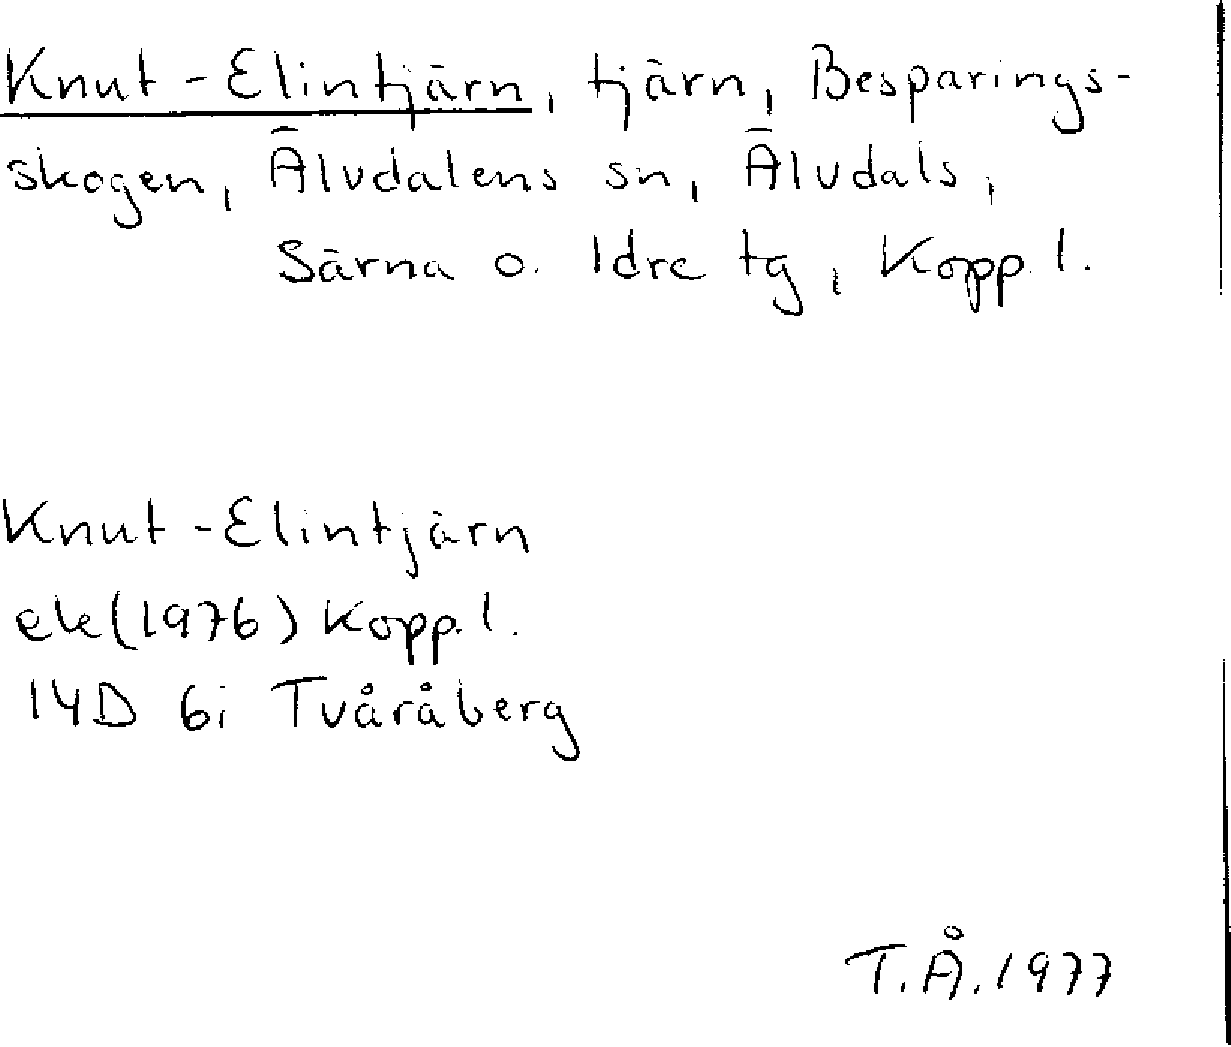 Knut-Elintjärn, tjärn, Besparings-
skogen, Älvdalens sn, Älvdals,
Särna o. Idre tg, Kopp. l.
Knut-Elintjärn
ek(1976) Kopp. l.
14D 6i Tvåråberg
T.Å. 1977